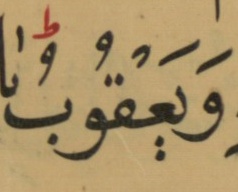 وَيَعْقُوبُ ط